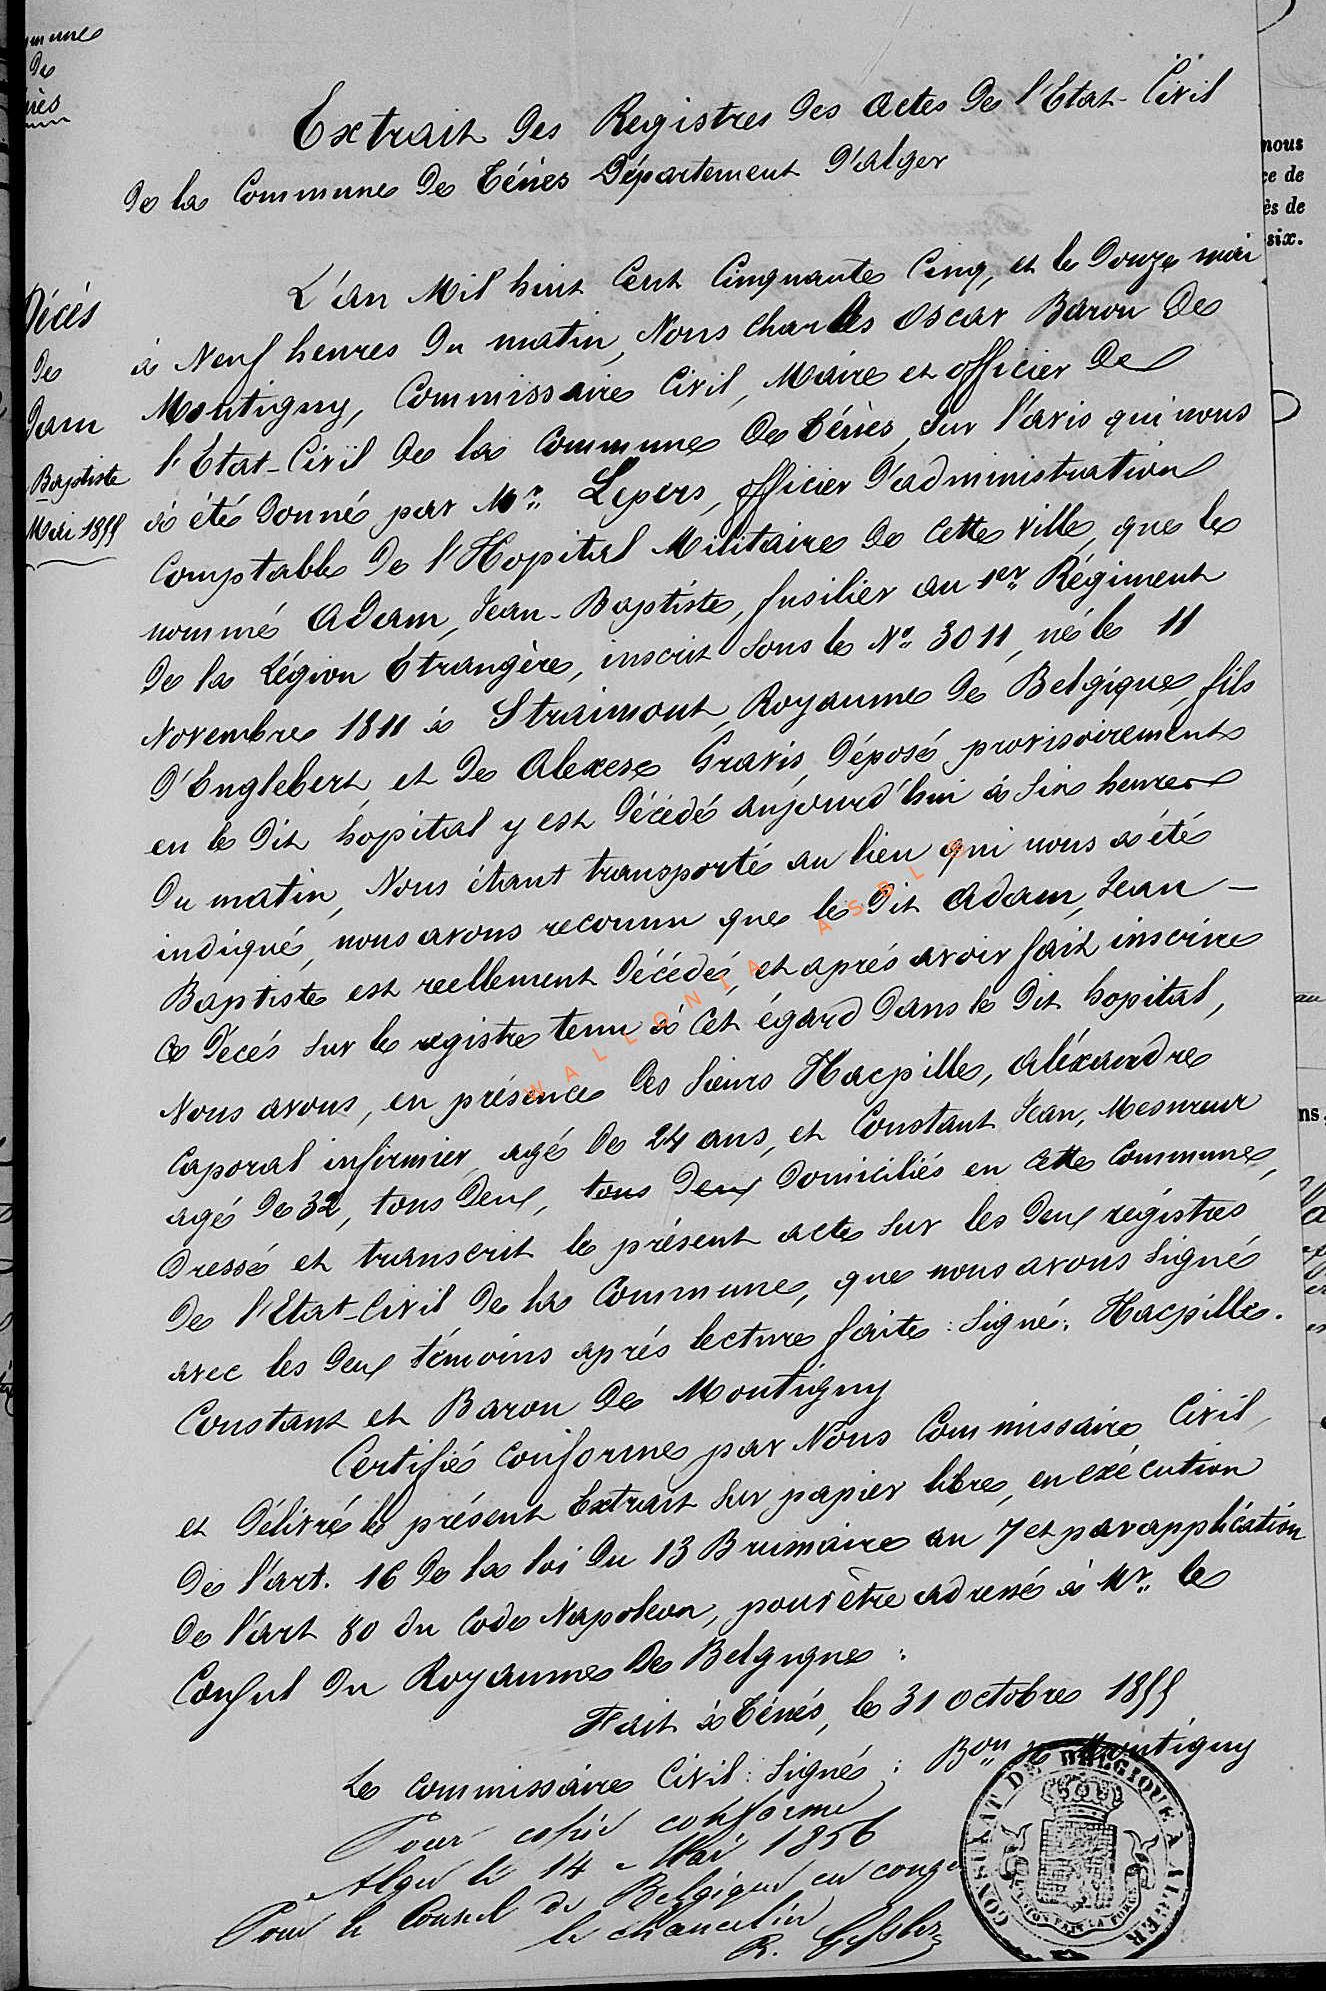 mmune
de
nès
Extrait des Registres des actes de l'Etat-Civil
de la Commune de Ténès Département d'alger
nous
ce de
ès de
six.
Décés
de
dam
Baptiste
Mai 1855
L'an Mil huit Cent Cinquante Cinq, et le douze mai
à Neuf heures du matin, Nous Charles Oscar Baron de
Montigny, Commissaire Civil, Maire et officier de
l'Etat-Civil de la Commune de Ténès, sur l'avis qui nous
à été donné par Mr. Lepers, officier d'administration
Comptable de l'Hopital Militaire de cette ville, que le
nommé Adam, Jean-Baptiste, fusilier au 1er Régiment
de la Légion Etrangère, inscrit sous le No. 3011, né le 11
Novembre 1811 à Straimont, Royaume de Belgique, fils
d'Englebert, et de Alexese Gravis, déposé provisoirement
en le dit hôpital y est décédé aujourd'hui à six heures
du matin, Nous étant transporté au lieu qui nous a été
indiqué, nous avons reconnu que le dit Adam, Jean –
Baptiste est reellement décédé, et aprés avoir fait inscrire
ce décés sur le registre tenu à cet égard dans le dit hopital,
Nous avons, en présence des sieurs Hacpille, Aléxandre
Caporal infirmier, agé de 24 ans, et Constant Jean, Mesureur
agé de 32, tous deux, tous deux domiciliés en cette Commune,
dressé et transcrit le présent acte sur les deux régistres
de l'Etat-Civil de la Commune, que nous avons signé
avec les deux témoins aprés lecture faite : signé : Hacpille.
Constant et Baron de Montigny
Certifié conforme par Nous Commissaire Civil,
et délivré le présent Extrait sur papier libre, en exécution
de l'art. 16 de la loi du 13 Brumaire an 7 et par application
de l'art 80 du Code Napoléon, pour être adressé à Mr. le
Consul du Royaume de Belgique :
Fait à Ténés, le 31 octobre 1855
Le Commissaire Civil : Signé : Bon de Montigny
Pour copie conforme
Alger le 14 Mai 1856
Pour le Consul de Belgique en congé
le chancelier
R.
CONSULAT DE BELGIQUE A ALGER
L'UNION FAIT LA FORCE
WALLONIA ASBL ©